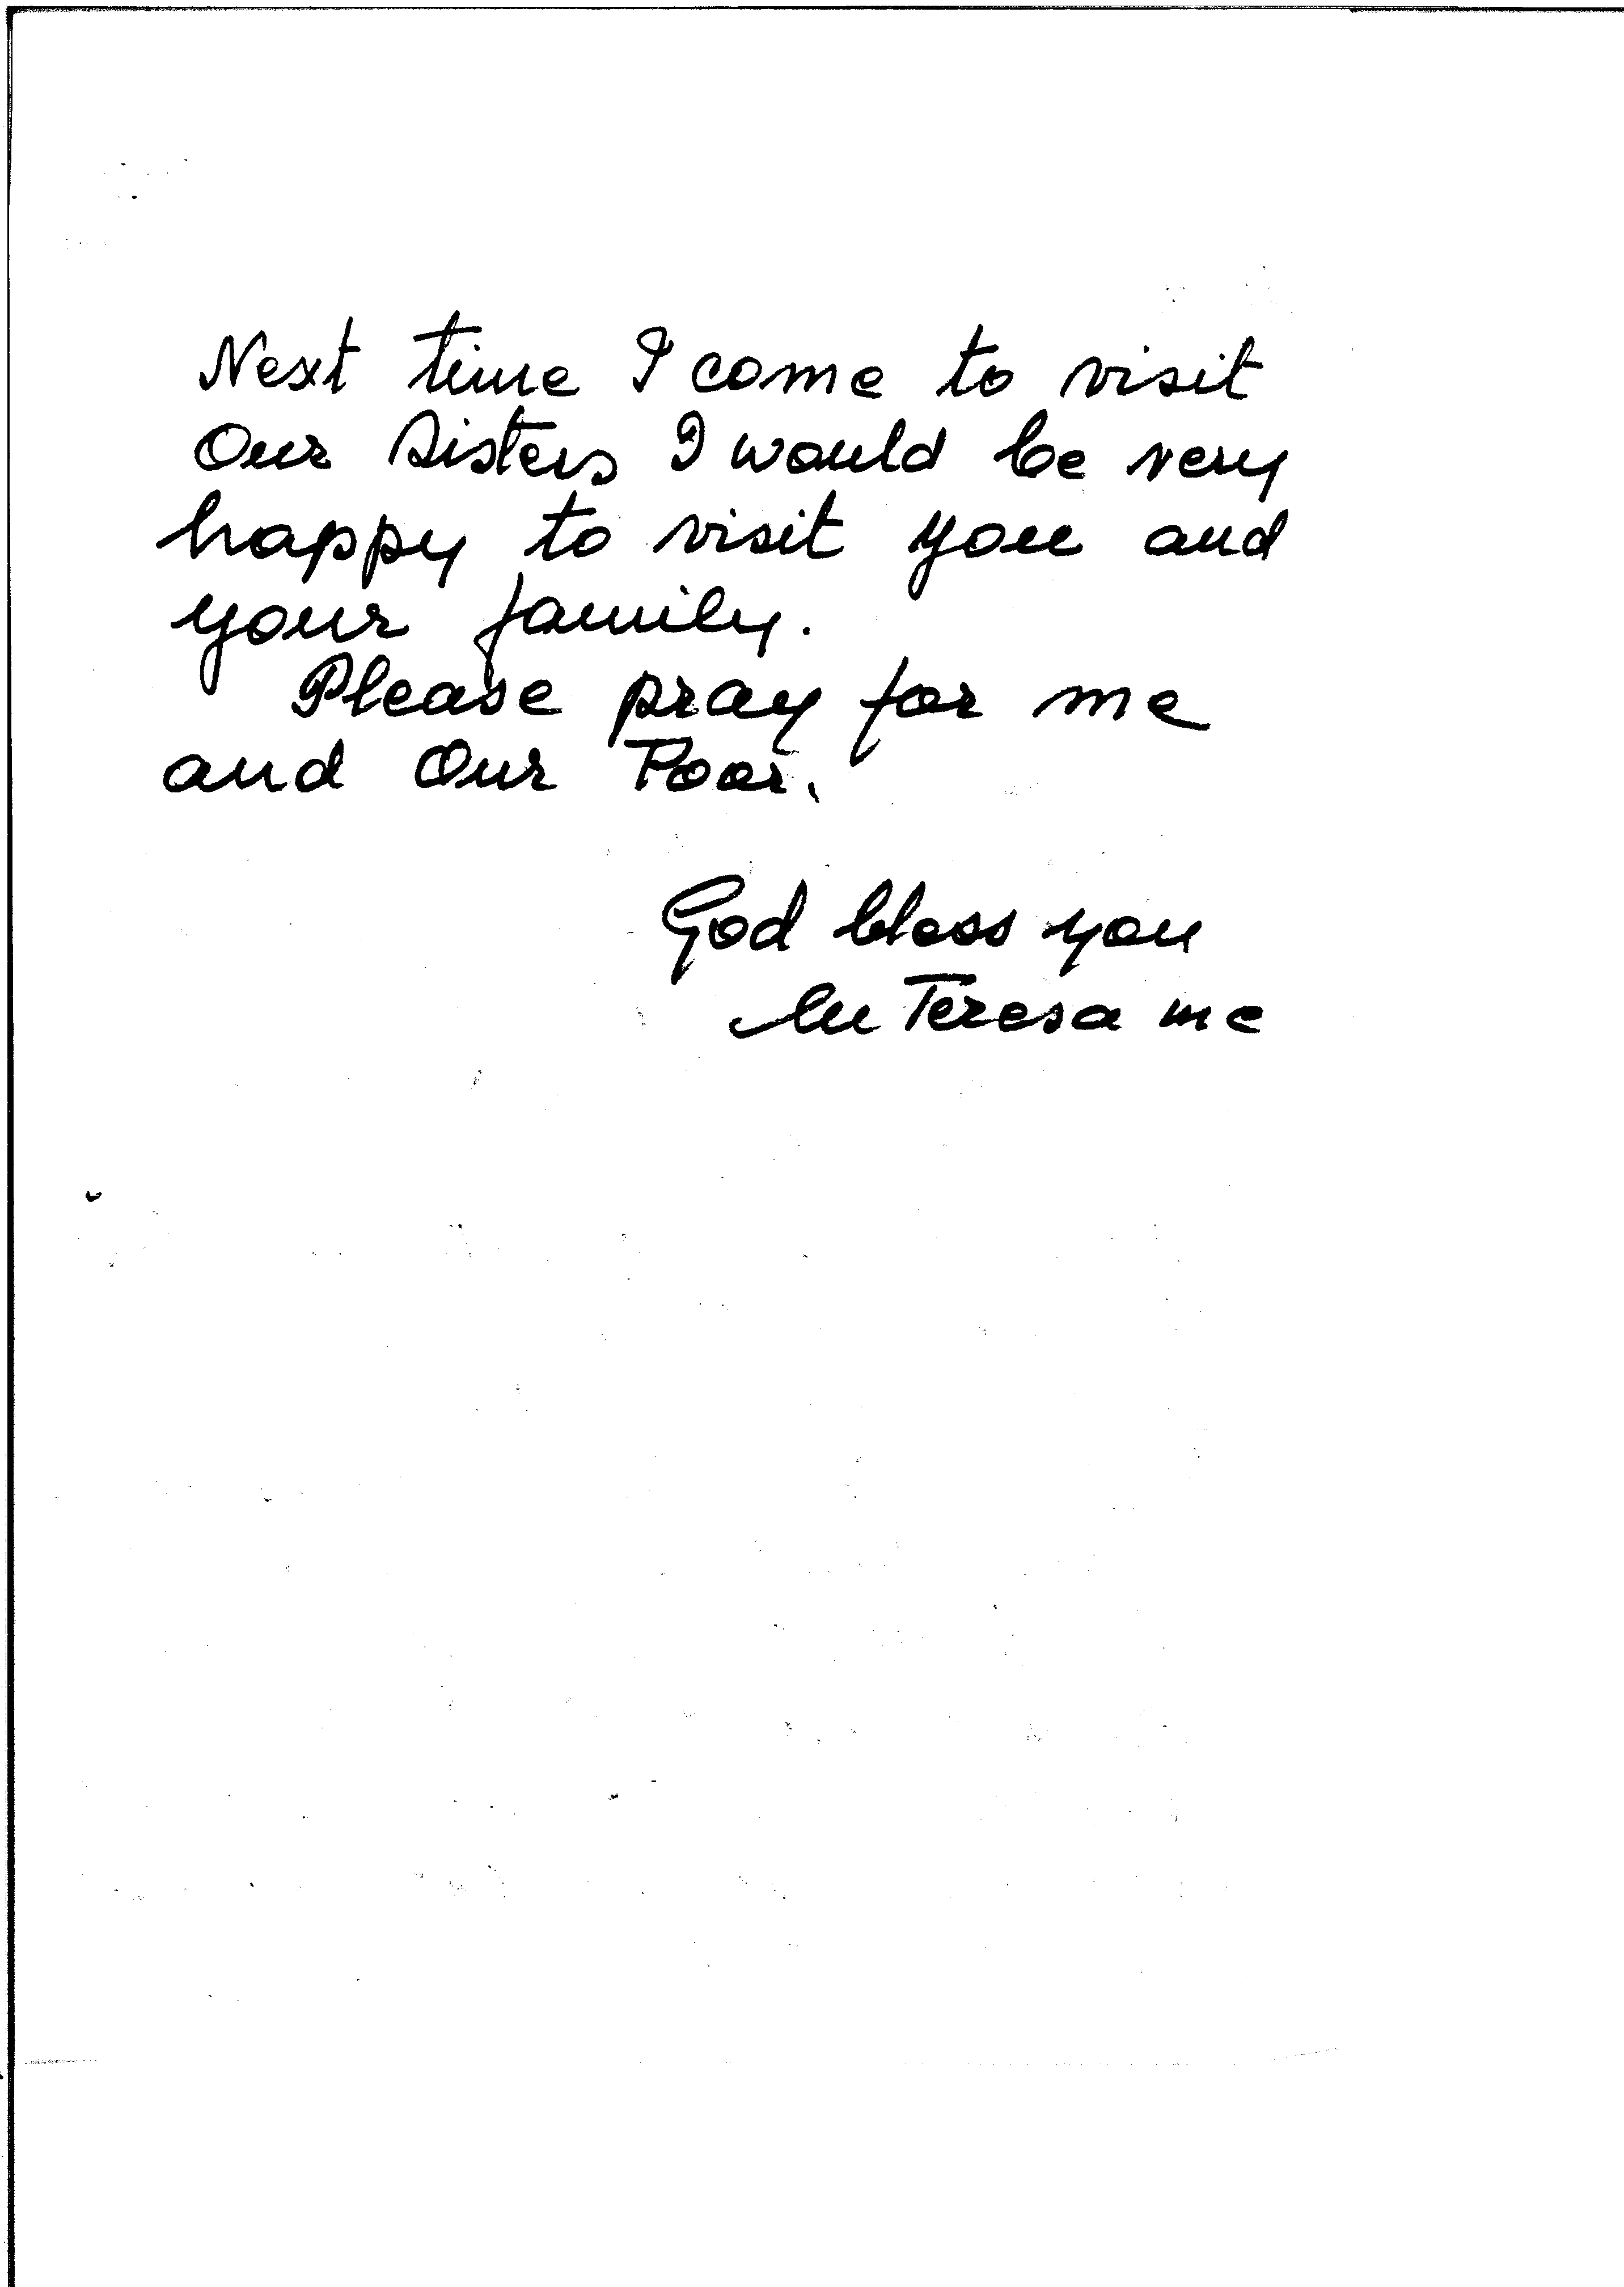 Next time I come to visit
Our Sisters I would be very
happy to visit you and
your family.
Please pray for me
and Our Poor.
God bless you
lu Teresa mc